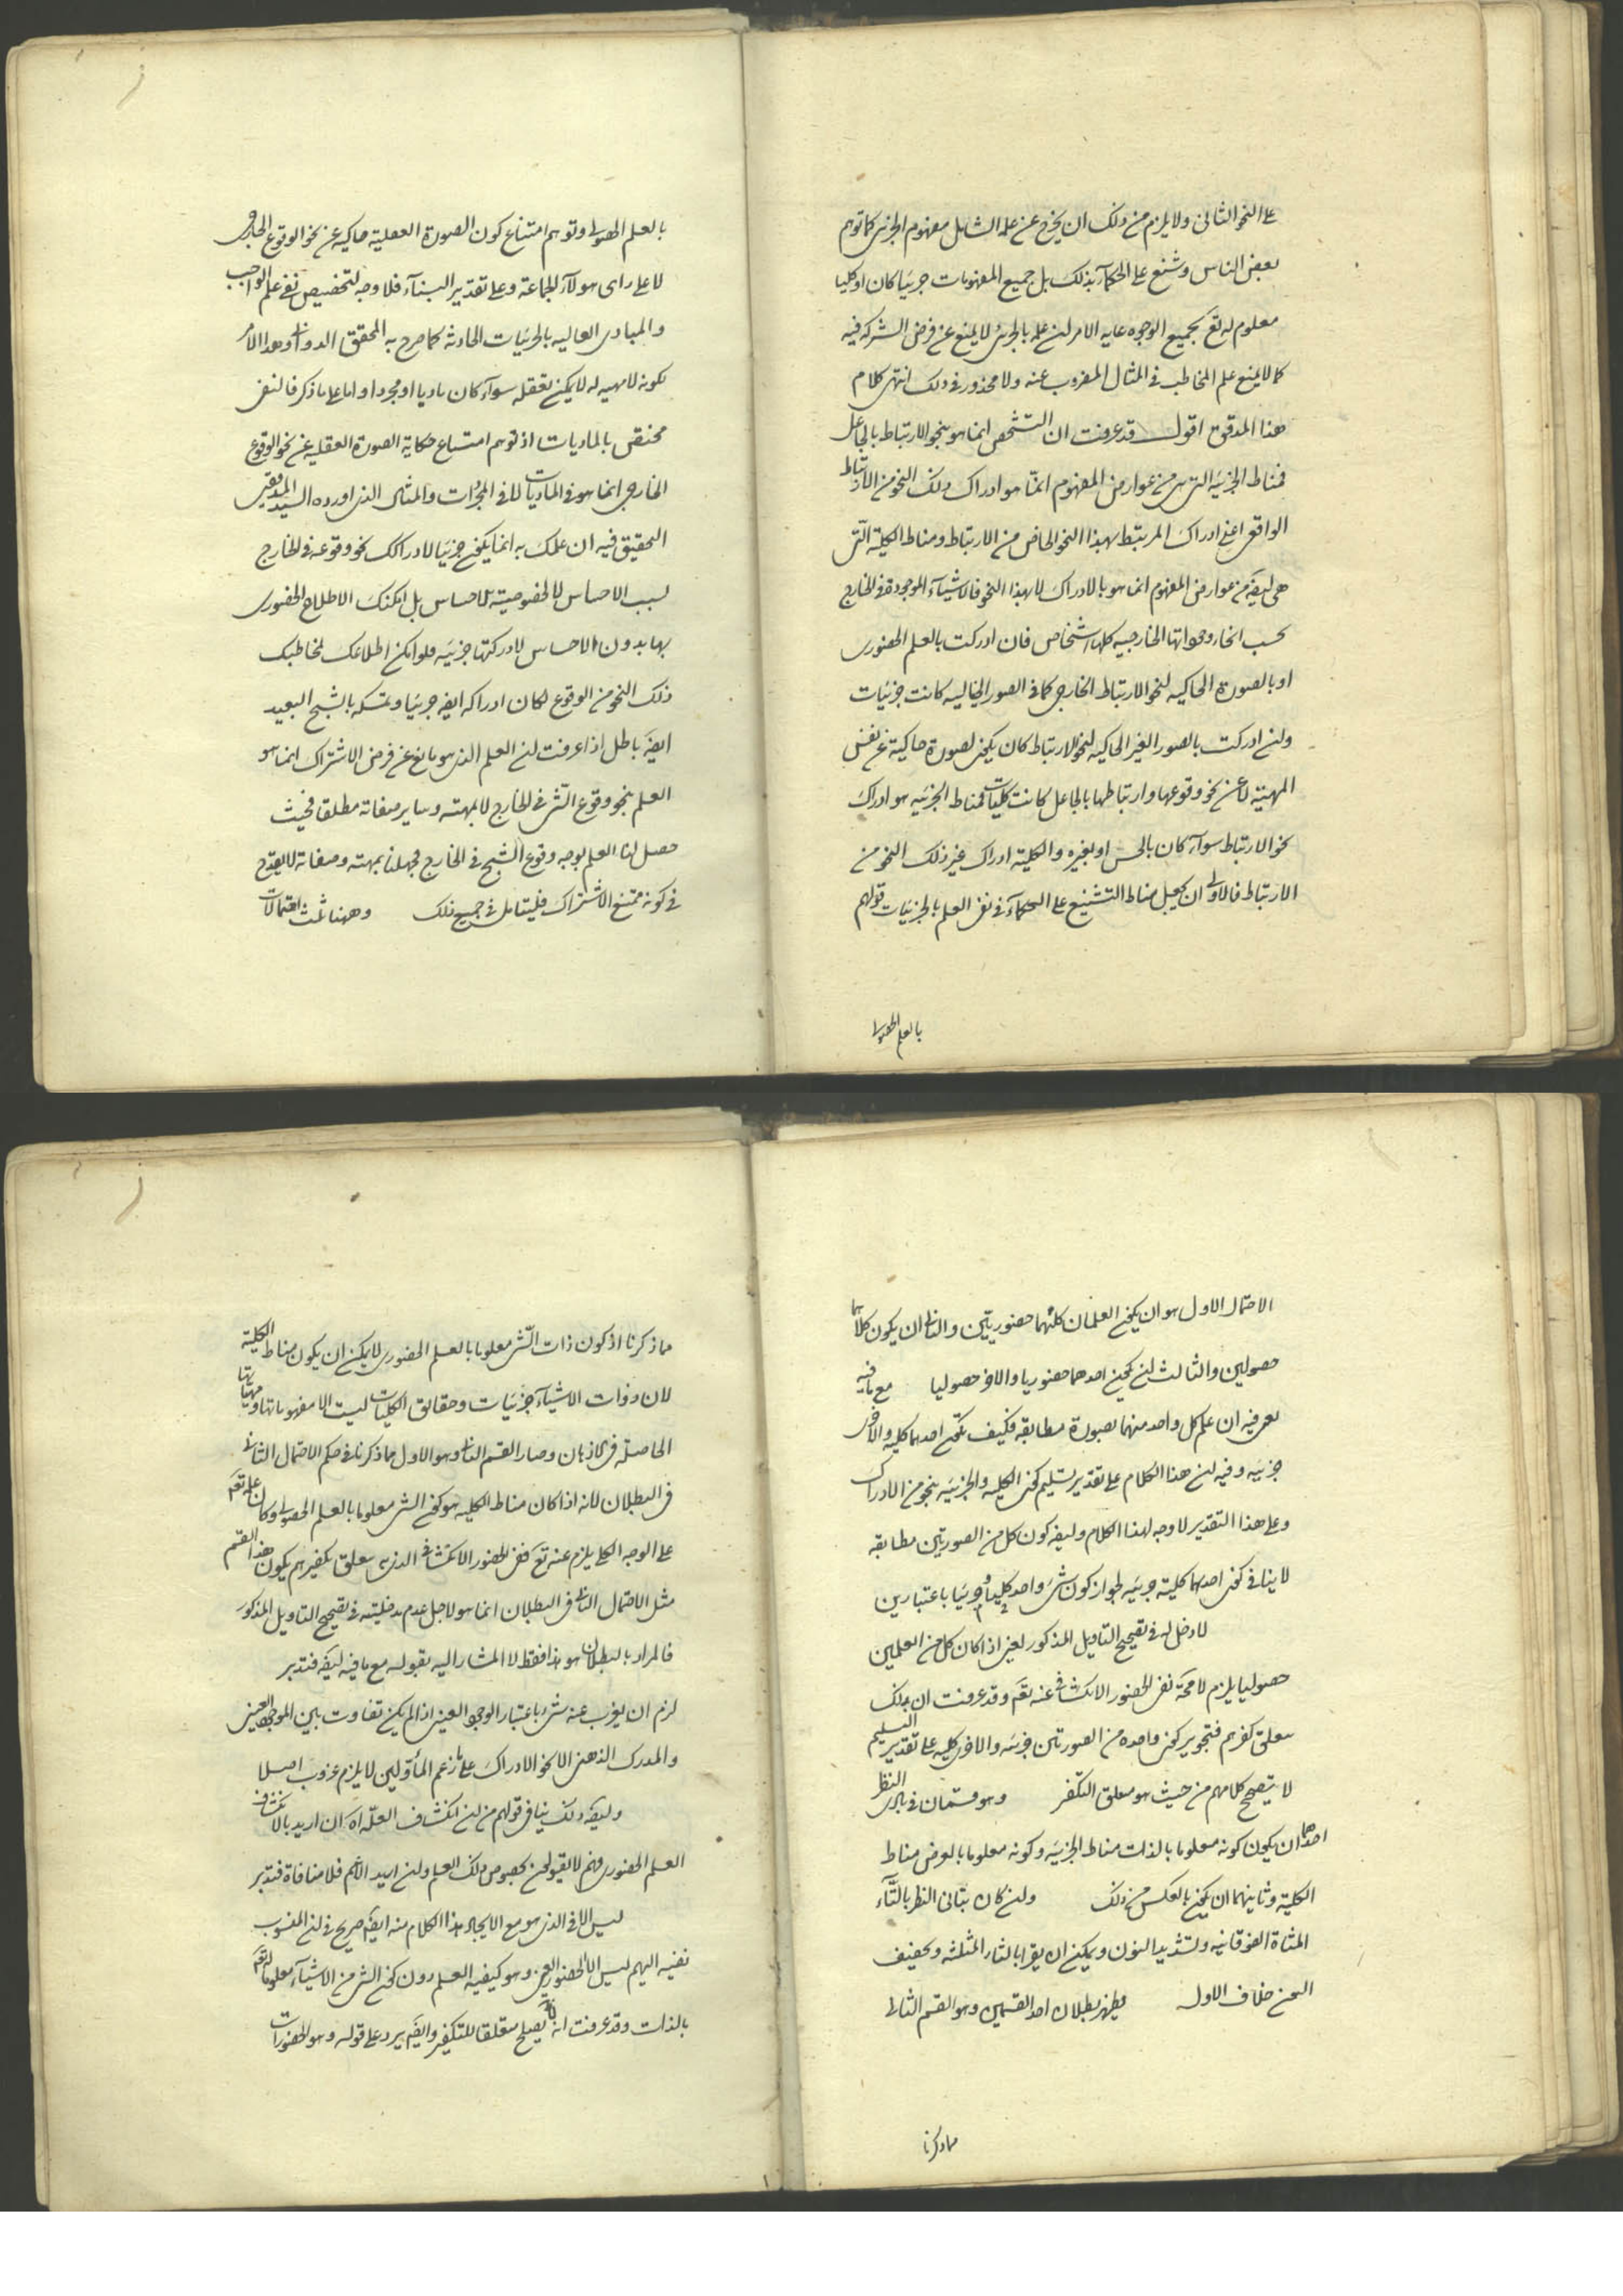 على النحو الثانى ولا يلزم من ذلك ان يخرج عن علمه الشامل مفهوم الجزئى كما توهم
بعض الناس وشنع على الحكمآء بذلك بل جميع المفهومات جزئيا كان او كليا
معلوم له تع بجميع الوجوه غاية الامر ان علمه بالجزئى لا يمنع عن فرض الشركة فيه
كما لا يمنع علم المخاطب فى المثال المضروب عنه ولا محذور فى ذلك انتهى كلام
هذا المدقق اقول قد عرفت ان التشخص انما هو بنحو الارتباط بالجاعل
فمناط الجزئية التى هى من عوارض المفهوم انمّا هو ادراك ذلك النحو من الارتباط
الواقعى اعنى ادراك المرتبط بهذا النحو الخاص من الارتباط ومناط الكلية الّتى
هى ايضَ من عوارض المفهوم انما هو بالادراك لا بهذا النحو فالاشيآء الموجودة فى الخارج
بحسب انحاء وجوداتها الخارجيه كلها اشخاص فان ادركت بالعلم الحضورى
او بالصورة الحاكيه لنحو الارتباط الخارجى كما فى الصور الخياليه كانت جزئيات
ولن ادركت بالصور الغير الحاكيه لنحو الارتباط كان يكون لصورة حاكية عن نفس
المهية لا عن نحو وقوعها وارتباطها بالجاعل كانت كليات فمناط الجزئيه هو ادراك
نحو الارتباط سوآء كان بالحس او بغيره والكليه ادراك غير ذلك النحو من
الارتباط فالاولى ان يجعل مناط التشنيع على الحكمآء فى نفى العلم بالجزئيات قولهم
بالعلم الحصولى
بالعلم الحصولى وتوهم امتناع كون الصورة العقليه حاكيه عن نحو الوقوع الخارجى
لا على راى هولآء الجماعة وعلى تقدير البنآء فلا وجه لتخصيص نفى علم الواجب
والمبادى العاليه بالجزئيات الحادثه كما صرح به المحقق الدوانى وهذا الامر
لكونه لا مهيه له لا يمكن تعقله سوآء كان ماديا او مجردا واما على ما ذكر فالنفى
مختص بالماديات اذ توهم امتناع حكاية الصورة العقليه عن نحو الوقوع
الخارجى انما هو فى الماديات لا فى المجردات والمثال الذى اورده السيد المدقق
التحقيق فيه ان علمك به انما يكون جزئيا لادراكك نحو وقوعه فى الخارج
بسبب الاحساس لا لخصوصية للاحساس بل امكنك الاطلاع الحضورى
بها بدون الاحساس لادركتها جزئيه فلو امكن اطلاعك مخاطبك
ذلك النحو من الوقوع لكان ادراكه ايضَ جزئيا وتمسكه بالشبح البعيد
ايضَ باطل اذا عرفت لن العلم الذى هو مانع عن فرض الاشتراك انما هو
العلم بنحو وقوع الشى فى الخارج لا بمهيته وساير صفاته مطلقا فحيث
حصل لنا العلم بوجه وقوع الشبح فى الخارج فجهلنا بمهيته وصفاته لا يقدح
فى كونه ممتنع الاشتراك فليتامل فى جميع ذلك وههنا ثلث احتمالات
الاحتمال الاول هو ان يكون العلمان كلٮهما حضوريتين والثانى ان يكون كلاهما
حصولين والثالث لن يكون احدهما حضوريا والاخر حصوليا مع ما فيه
يعنى فيه ان علم كل واحد منهما بصورة مطابقه فكيف يكون احدهما كليه والاخرى
جزئيه وفيه لن هذا الكلام على تقدير تسليم كون الكليه والجزئيه بنحو من الادراك
وعلى هذا التقدير لا وجه لهذا الكلام وايضَ كون كل من الصورتين مطابقه
لا ينافى كون احدهما كلية جزئيه لجواز كون شئ واحد كليا وجزئيا باعتبارين
لا دخل له فى تصحيح التاويل المذكور يعنى اذا كان كل من العلمين
حصوليا يلزم لا محَة نفى الحضور الانكشافى عنه تعَ وقد عرفت ان ذلك
متعلق كفرهم فتجويز كون واحدة من الصورتين جزئيه والاخرى كليه على تقدير التسليم
لا يتصحح كلامهم من حيث هو متعلق التكفر وهو قسمان فى بادى النظر
احدهما ان يكون كونه معلوما بالذات مناط الجزئيه وكونه معلوما بالعرض مناط
الكلية وثانيهما ان يكون بالعكس من ذلك ولن كان بتانى النظر بالتآء
المثناة الفوقانيه وتشديد النون ويمكن ان يقرا بالثاء المثلثه وتخفيف
النون خلاف الاول فيظهر بطلان احد القسمين وهو القسم الثانى
مما ذكرنا
مما ذكرنا اذ كون ذات الشى معلوما بالعلم الحضورى لا يمكن ان يكون مناط الكلية
لان ذوات الاشيآء جزئيات وحقايق الكليات ليست الا مفهوماتها ومهياتها
الحاصلة فى الاذهان وصار القسم الثانى وهو الاول مما ذكرنا فى حكم الاحتمال الثانى
فى البطلان لانه اذا كان مناط الكليه هو كون الشى معلوما بالعلم الحصولى وكان علمه تعَ
على الوجه الكلى يلزم عنه تعَ نفى الحضور الانكشافى الذى به متعلق تكفيرهم يكون هذا القسم
مثل الاحتمال الثانى فى البطلان انما هو لاجل عدم مدخليته فى تصحيح التاويل المذكور
فالمراد بالبطلان هو هذا فقط لا المشار اليه بقوله مع ما فيه ايضَ فتدبر
لزم ان يعزب عنه شئ باعتبار الوجود العينى اذا لم يكن تفاوت بين الموجود العينى
والمدرك الذهنى الا بنحو الادراك على زعم المأولين لا يلزم عزوب اصلا
وايضَ ذلك ينافى قولهم من لن انكشاف العلّه اه ان اريد بالانكشاف
العلم الحضورى فهم لا يقولون بخصوص ذلك العلم ولن اريد الاعم فلا منافاة فتدبر
ليس الا فى الذى هو مع الايجاد هذا الكلام منه ايضَ صريح فى لن المنسوب
نفيه اليهم ليس الا الحضور العينى وهو كيفيه العلم دون كون الشى من الاشيآء معلوما له تعَ
بالذات وقد عرفت انه لا يصلح متعلقا للتكفير وايضَ يرد على قوله وهو الحضورات